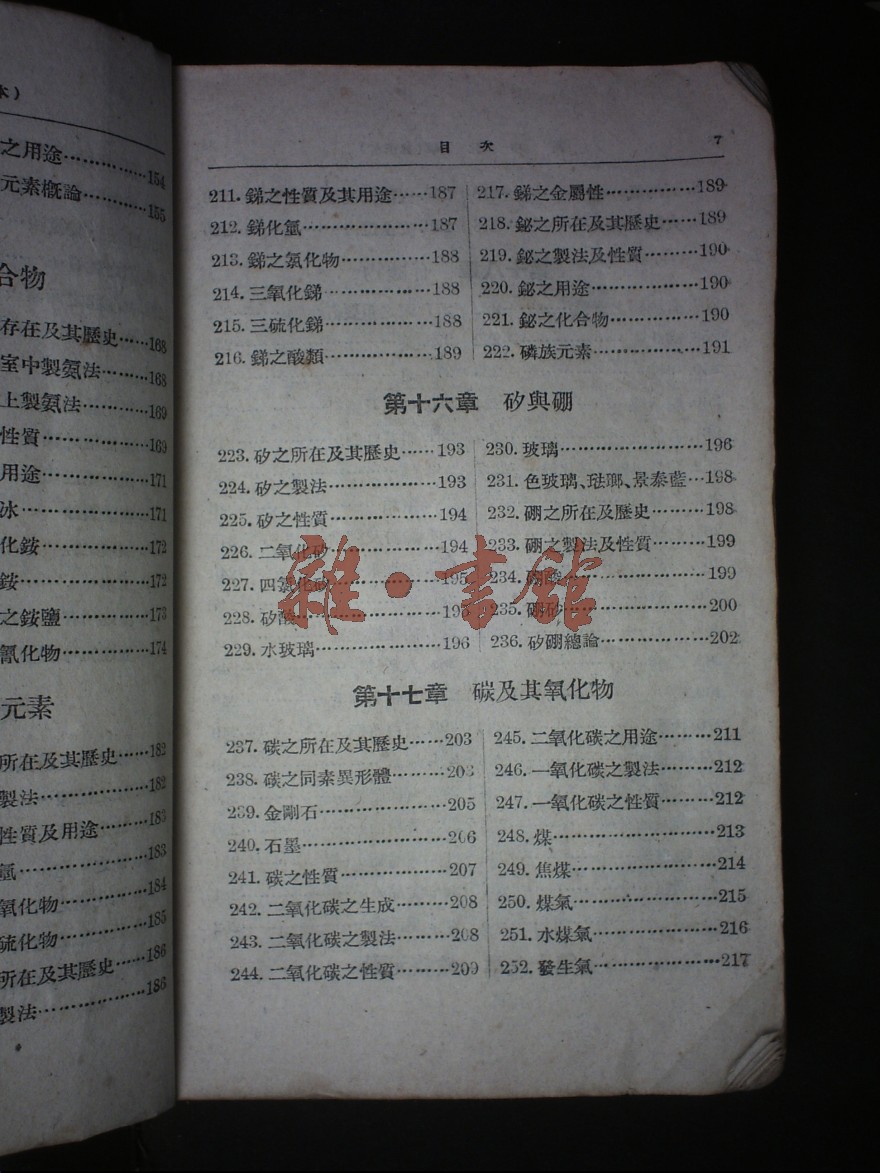 本）
之用途…………154
元素概論…………155
合物
存在及其歷史……168
室中製氨法………168
上製氨法…………169
性質………………169
用途………………171
冰…………………171
化銨………………172
銨…………………172
之銨鹽……………173
氰化物……………174
元素
所在及其歷史……182
製法………………182
性質及用途………183
氫…………………183
氧化物……………184
硫化物……………185
所在及其歷史……186
製法………………186
目 次 7
211. 銻之性質及其用途……187
212. 銻化氫…………………187
213. 銻之氯化物……………188
214. 三氧化銻………………188
215. 三硫化銻………………188
216. 銻之酸類………………189
217. 銻之金屬性……………189
218. 鉍之所在及其歷史……189
219. 鉍之製法及性質………190
220. 鉍之用途………………190
221. 鉍之化合物……………190
222. 磷族元素………………191
第十六章 矽與硼
223. 矽之所在及其歷史……193
224. 矽之製法………………193
225. 矽之性質………………194
226. 二氧化矽………………194
227. 四氯化矽………………195
228. 矽酸……………………195
229. 水玻璃…………………196
230. 玻璃……………………196
231. 色玻璃、琺瑯、景泰藍…198
232. 硼之所在及歷史………198
233. 硼之製法及性質………199
234. 硼酸……………………199
235. 硼砂……………………200
236. 矽硼總論………………202
第十七章 碳及其氧化物
237. 碳之所在及其歷史……203
238. 碳之同素異形體………203
239. 金剛石…………………205
240. 石墨……………………206
241. 碳之性質………………207
242. 二氧化碳之生成………208
243. 二氧化碳之製法………208
244. 二氧化碳之性質………209
245. 二氧化碳之用途………211
246. 一氧化碳之製法………212
247. 一氧化碳之性質………212
248. 煤………………………213
249. 焦煤……………………214
250. 煤氣……………………215
251. 水煤氣…………………216
252. 發生氣…………………217
雜·書館